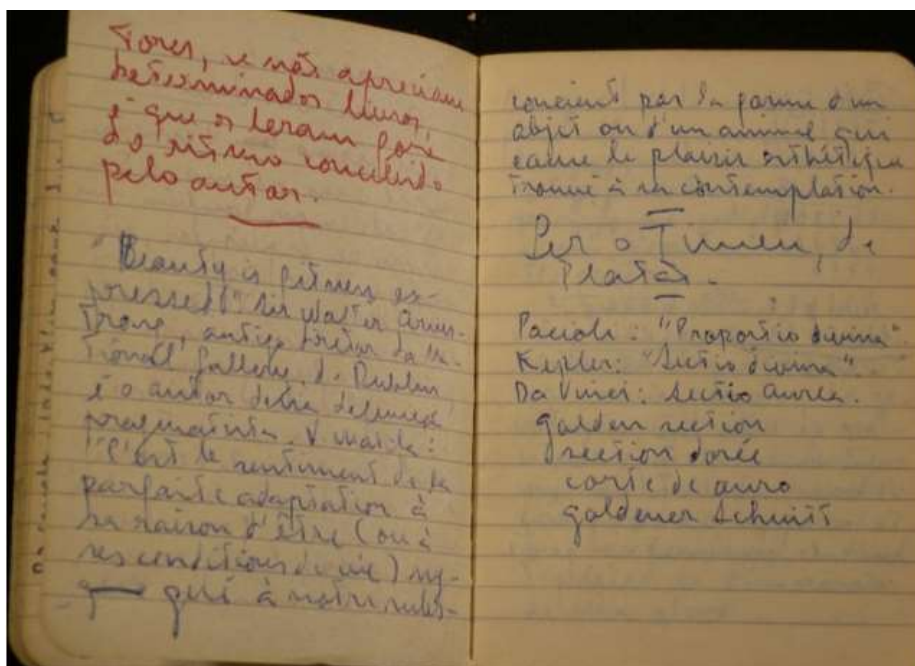 tores, se não apreciam
determinados livros,
é que os leram fora
do ritmo concebido
pelo autor.
"Beauty is fitness ex-
pressed": Sir Walter Arms-
trong, antigo diretor da Na-
tional Gallery de Dublin
é o autor dessa
pragmatista.
"C'est le sentiment de la
parfaite adaptation à
sa raison d'être (ou à
ses conditions de vie) sug-
géré à notre subs-
concient par la forme d'un
objet ou d'un animal qui
cause le plaisir esthétique
trouvé à sa contemplation.
Ler o Timeu, de
Platão.
Pacioli: "Proportio divina"
Kepler: "Sectio divina"
Da Vinci: Sectio Aurea.
golden section
section dorée
corte de ouro
goldener Schnitt